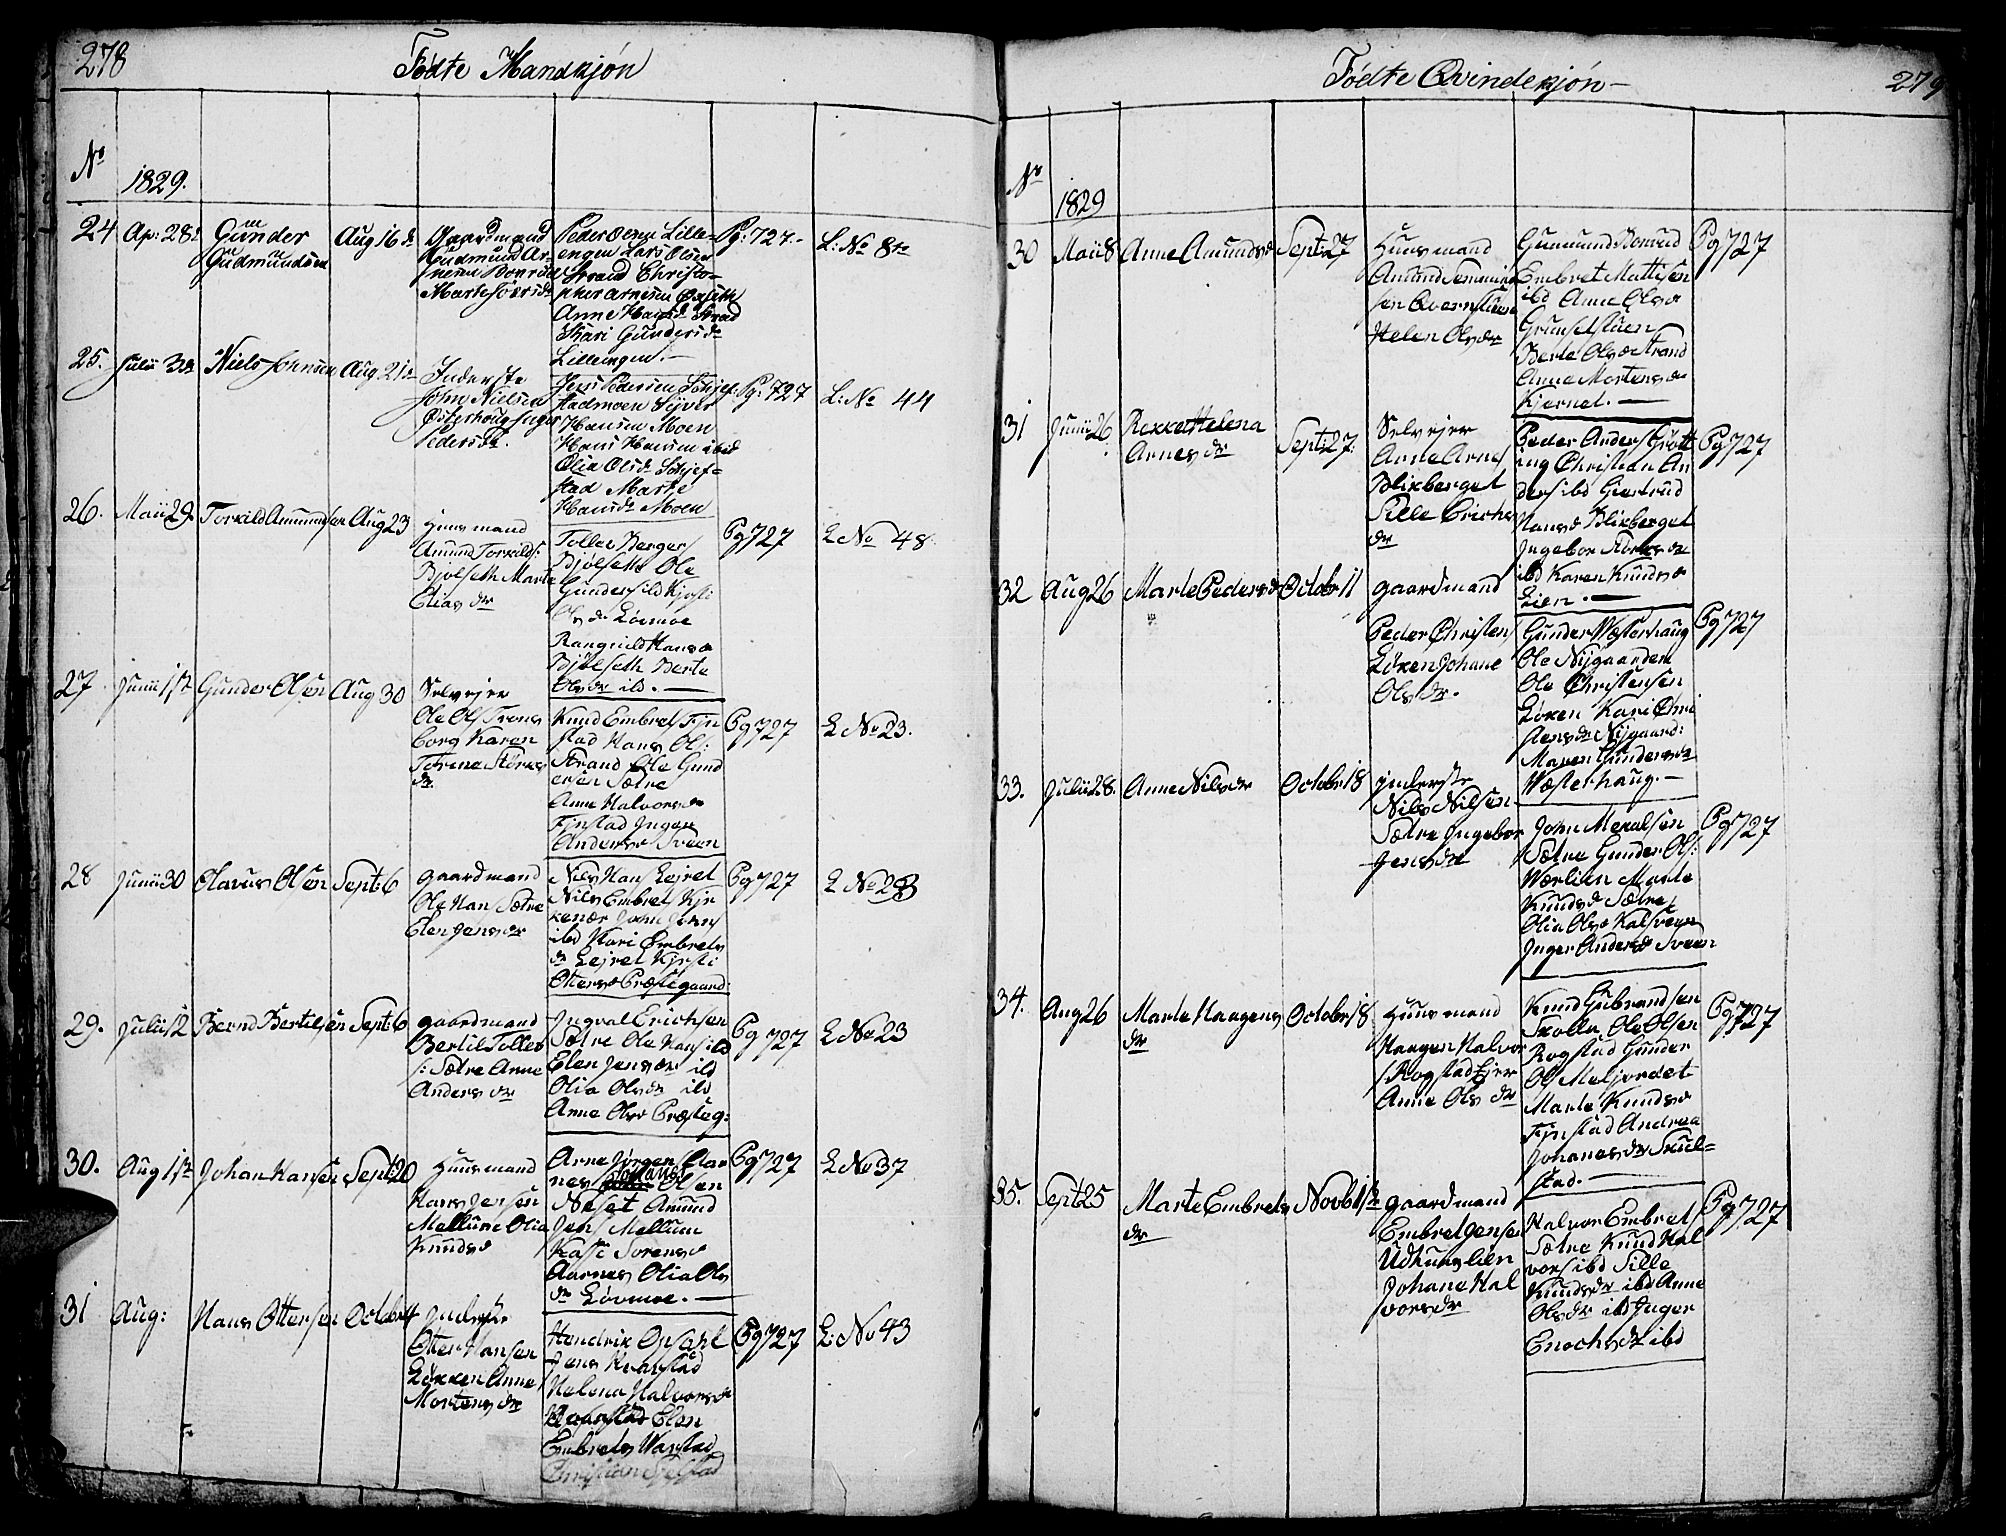 278
Fødte Mandkjön
No
1829.
24
Ap: 28de
Gunder
Gudmundsen
Aug 16de
Gaardmand
Gudmund Ar-
nesen Bonrud
Marte Toersdr
Peder Lille-
engen Lars Olsen
Strand Christo-
pher Arnesen
Anne Hansdr Strand
Kari Gundersdr
Lilleengen.
Pg: 727.
L: No 8de
25.
Julii 3de
Niels Johnsen
Aug. 21de
Inderste
John Nielsen
Østerhoug Inger
Pedersdr.
Jens Pedersen
stadmoen Siver
Hansen Moen
Hans Hansen ibid
Olia Olsdr
stad Marte
Hansdr Moen
Pg: 727
L: No 44
26.
Maii 29
Torkild Amundsen
Aug 23
Huusmand
Amund Torkilds:
Bjølseth Marte
Elias dr
Tollev Berger
Bjølseth Ole
Gunders ibd Kjrsti
Olsdr Lövmoe
Rangnild Hansdr
Bjölseth Berte
Olsdr ibd.
Pg 727
L No 48
27
Junii 1ste
Gunder Olsen
Aug 30
Selvejer
Ole Ols Trons
borg Karen
Torine Störes
dr
Knud Embrets Fin
stad Hans Ols:
Strand Ole Gund
ersen Sætre
Anne Halvorsdr
Finstad Inger
Andersdr Sveen
Pg 727
L No 23.
28
Junii 30
Olavus Olsen
Sept: 6
gaardmand
Ole Hans Sætre
Elen Jensdr
Nils Hans Lejret
Nils Embret Kir
kenær John Johns
ibd Kari Embrets
dr Lejret Kjrsti
Ottersdr Præstegaard:
Pg 727
L No 28
29.
Julii 12
Bernd Bertilsen
Sept: 6
gaardmand
Bertil Tollev
s: Sætre Anne
Anders dr
Ingval Erichsen
Sætre Ole Hans ibd
Elen Jensdr ibd
Olia Olsdr ibd
Anne Olsdr Præsteg:
Pg 727
L No 23
30.
Aug 1ste
Johan Hansen
Sept: 20
Huusmand
Hans Jensen
Mellum Olia
Knudsdr
Arne Jørgen Aar
nes Johanes Olsen
Næset Amund
Jens Mellum
Kasti Sorensdr
Aarnes Olia Ols
dr Lövmoe.
Pg 727
L No 37
31
Aug:
Hans Ottersen
Octobr 4
Inderste
Otter Hansen
Løkken Anne
Mortens dr
Hendrik Opsahl
Jens Kvarstad
Helena Halvorsdr
Kvarstad Elen
Embrets Warstad
Christian
Pg 727
L: No 43
Fødte Qvindekjön
279
No
1829
30
Maii 8
Anne Amundsdr
Sept: 27
Huusmand
Amund Semming
sen Qvernstuen
Helen Olsdr
Gumund Bonrud
Embret Mattisen
ibd Anne Olsdr
Grunsetstuen
Berte Olsdr Strand
Anne Mortensdr
Kjernet.
Pg 727
31
Junii 26
Rekke Helena
Arnes dr
Sept: 27:
Selvejer
Arne Arnes
Blikberget
Sille Erichs
dr
Peder Anders Grøtt
ing Christian An
ders ibd Giertrud
Hansdr Blikberget
Ingebor Störesdr
ibd Karen Knudsdr
Lien.
Pg 727
32
Aug 26
Marte Pedersdr
Octobr 11
gaardmand
Peder Christens
Löken Johane
Olsdr.
Gunder Westerhaug
Ole Nijgaarden
Ole Christensen
Löken Kari Chri
stensdr Nijgaard:
Maren Gundersdr
Westerhaug.
Pg 727
33.
Julii 28.
Anne Nilsdr
Octobr 18
inderste
Nils Nilsen
Sætre Ingebor
Jensdr
John Mekalsen
Sætre Gunder Ols:
Wærlien Marte
Knudsdr Sætre
Olia Olsdr Kalsveen
Inger Andersdr Sveen
Pg 727
34.
Aug 26
Marte Haagens
dr
Octobr 18
Huusmand
Haagen Halvor
s Rogstad Ejer
Anne Ols dr
Knud Gubrandsen
Skolla Ole Olsen
Rogstad Gunder
Ols Meljordet
Marte Knudsdr
Finstad Andrea
Johanesdr
stad.
Pg 727
35.
Sept: 25
Marte Embrets
dr
Novbr 1ste
gaardmand
Embret Jensen
Udhuuslien
Johane Hal
vorsdr
Halvor Embret
Sætre Knud Hal
vors ibd Sille
Knudsdr ibd Anne
Olsdr ibd Inger
Enochsdr ibd
Pg 727